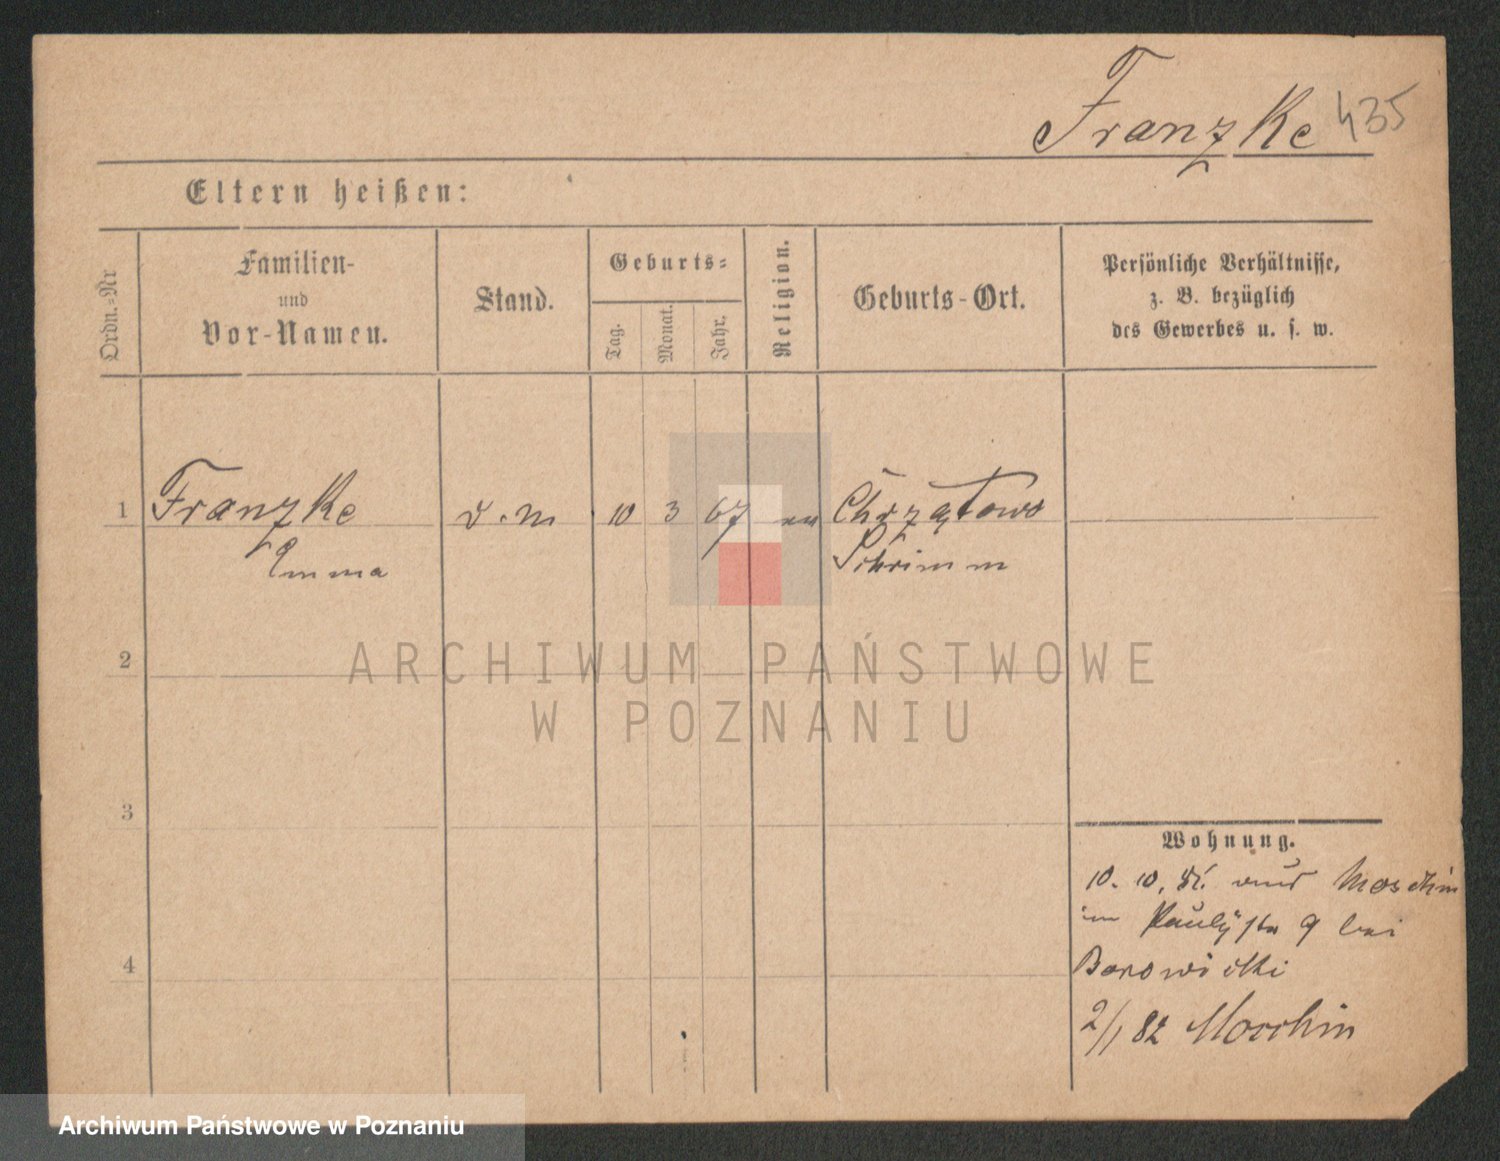 Franzke 435
Eltern heißen:
Ordn.-Nr
Familien-
und
Vor-Namen.
Stand.
Geburts-
Tag.
Monat.
Jahr.
Religion.
Geburts-Ort.
Persönliche Verhältnisse,
z. B. bezüglich
des Gewerbes u. s. w.
1 Franzke d. m 10 3 67 Chrząstowo
Emma Schrimm
2
ARCHIWUM PAŃSTWOWE
W POZNANIU
3
Wohnung.
10. 10. 81. aus Moschin
in 9 bei
4 Borowicki
2/1 82 Moschin
Archiwum Państwowe w Poznaniu